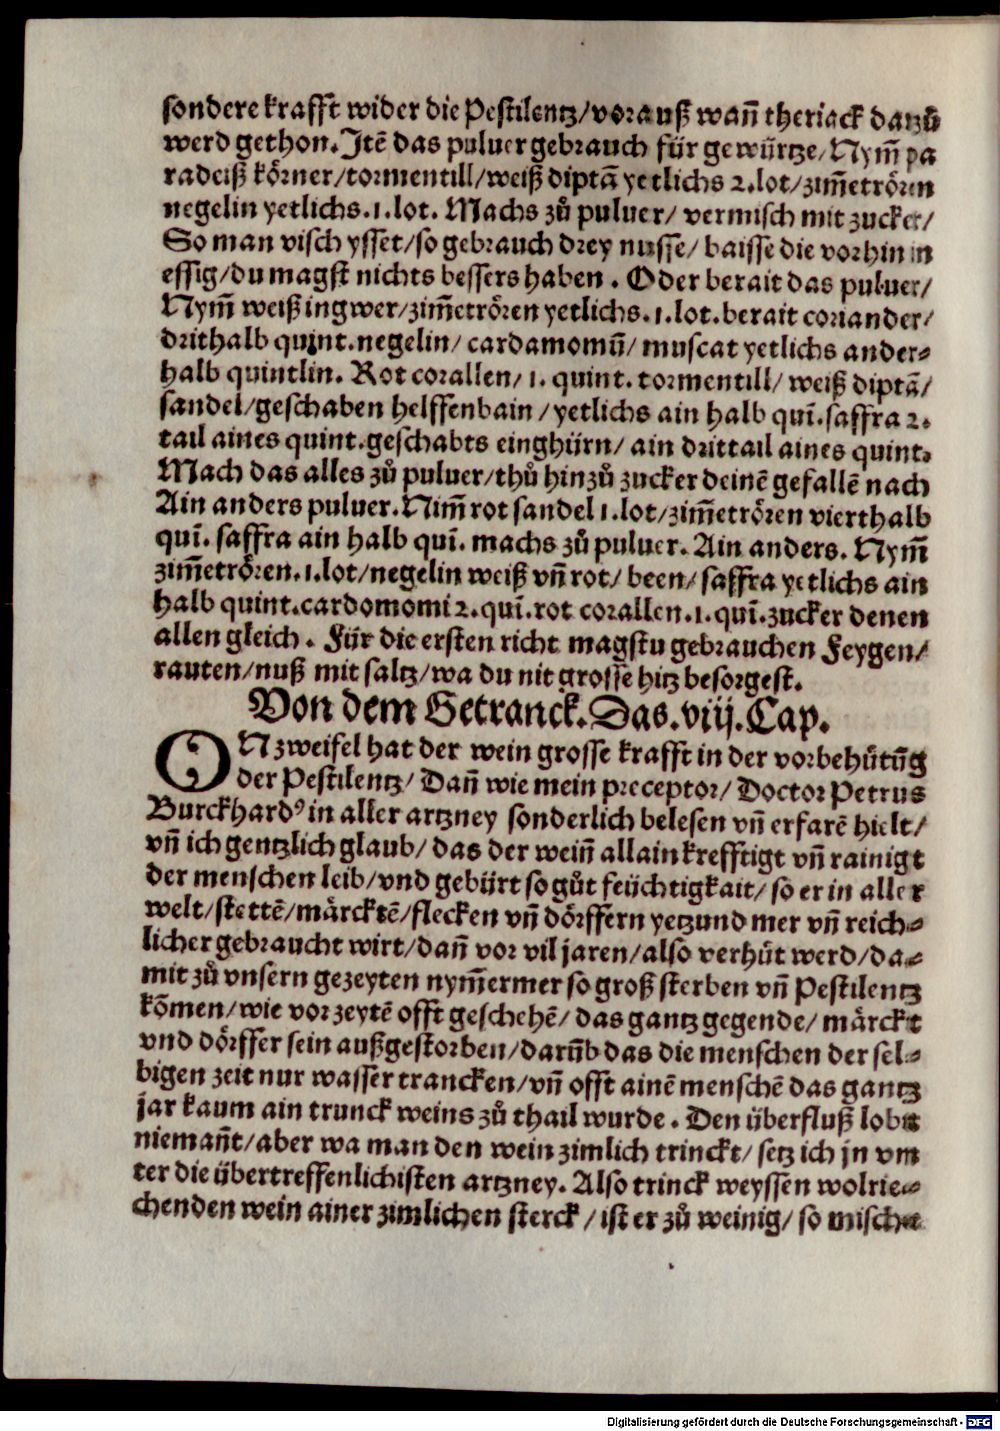 sondere krafft wider die Pestilentz/vorauß wañ theriack darzů
werd gethon. Itē das puluer gebrauch für gewürtze/Nym̄ pa
radeiß körner/tormentill/weiß diptā yetlichs 2.lot/zim̄etrören
negelin yetlichs.1.lot. Machs zů puluer/ vermisch mit zucker/
So man visch ysset/so gebrauch drey nusse/ baisse die vorhin in
essig/du magst nichts bessers haben. Oder berait das puluer/
Nym̄ weiß ingwer/zim̄etrören yetlichs.1.lot.berait coriander/
drithalb quint.negelin/ cardamomū/ muscat yetlichs ander⸗
halb quintlin. Rot corallen/ 1. quint. tormentill/ weiß diptā/
sandel/geschaben helffenbain/yetlichs ain halb quī.saffra 2.
tail aines quint.geschabts einghürn/ ain drittail aines quint.
Mach das alles zů puluer/thů hinzů zucker deinē gefallē nach
Ain anders puluer. Nim̄ rot sandel 1.lot/zim̄etrören vierthalb
quī. saffra ain halb quī. machs zů puluer. Ain anders. Nym̄
zim̄etrören.1.lot/negelin weiß vñ rot/ been/ saffra yetlichs ain
halb quint.cardomomi 2.quī.rot corallen.1.quī.zucker denen
allen gleich. Für die ersten richt magstu gebrauchen Feygen/
rauten/nuß mit saltz/wa du nit grosse hitz besorgest.
Von dem Getranck.Das.viij.Cap.
ONzweifel hat der wein grosse krafft in der vorbehütūg
der Pestilentz/ Dañ wie mein preceptor/ Doctor Petrus
Burckhardꝰ in aller artzney sonderlich belesen vñ erfarē hielt/
vñ ich gentzlich glaub/ das der weiñ allain krefftigt vñ rainigt
der menschen leib/vnd gebürt so gůt feüchtigkait/ so er in aller
welt/stettē/märcktē/flecken vñ dörffern yetzund mer vñ reich⸗
licher gebraucht wirt/dañ vor vil jaren/also verhüt werd/da⸗
mit zů vnsern gezeyten nym̄ermer so groß sterben vñ Pestilentz
kōmen/wie vor zeytē offt geschehē/ das gantz gegende/ märckt
vnd dörffer sein außgestorben/darūb das die menschen der sel⸗
bigen zeit nur wasser trancken/vñ offt ainē menschē das gantz
jar kaum ain trunck weins zů thail wurde. Den überfluß lobt
niemañt/aber wa man den wein zimlich trinckt/ setz ich jn vn
ter die übertreffenlichisten artzney. Also trinck weyssen wolrie⸗
chenden wein ainer zimlichen sterck/ist er zů weinig/ so misch
Digitalisierung gefördert durch die Deutsche Forschungsgemeinschaft - DFG